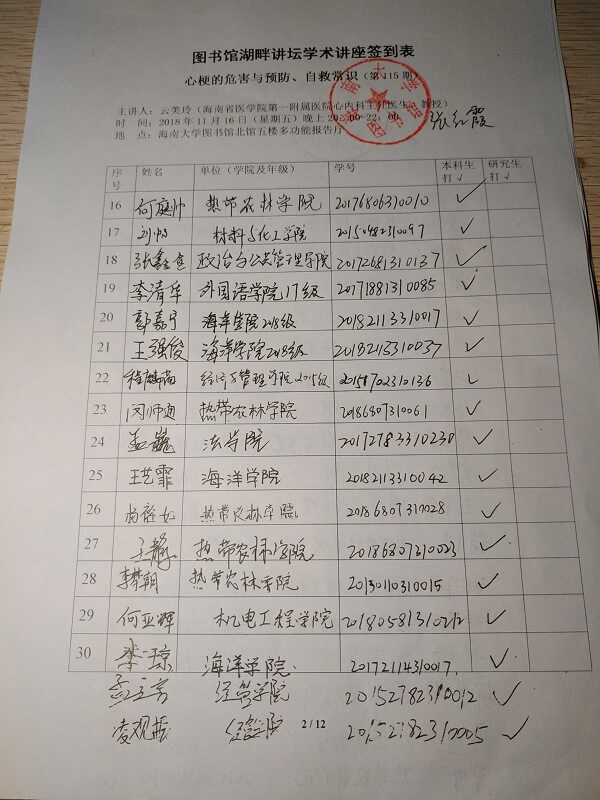 图书馆湖畔讲坛学术讲座签到表
心梗的危害与预防、自救常识（第115期）
主讲人：云美玲（海南省医学院第一附属医院心内科主任医生、教授）
时 间：2018年11月16日（星期五）晚20:00-22:00
地 点：海南大学图书馆北馆五楼多功能报告厅
张红霞
序号 姓名 单位（学院及年级） 学号 本科生打√ 研究生打√
16 何庭帅 热带农林学院 20176806310010 ✓
17 刘 材料与化工学院 20150482310097 ✓
18 张鑫鱼 政治与公共管理学院 20172681310137 ✓
19 李清华 外国语学院17级 20171881310085 ✓
20 郭嘉宁 海洋学院2018级 20182113310017 ✓
21 王强俊 海洋学院2018级 20182115310037 ✓
22 经济与管理学院2015级 20151702310136 ✓
23 闵师 热带农林学院 20186807310061 ✓
24 孟巍 法学院 20172783310230 ✓
25 王艺霏 海洋学院 20182113310042 ✓
26 尚裕 热带农林学院 20186807310028 ✓
27 于静 热带农林学院 20186807210023 ✓
28 李梦朝 热带农林学院 20130110310015 ✓
29 何亚辉 机电工程学院 20180581310212 ✓
30 李一琼 海洋学院 20172114310017 ✓
孟立言 经管学院 20152782310012 ✓
凌观 经管院 20152182310005 ✓
2 / 12